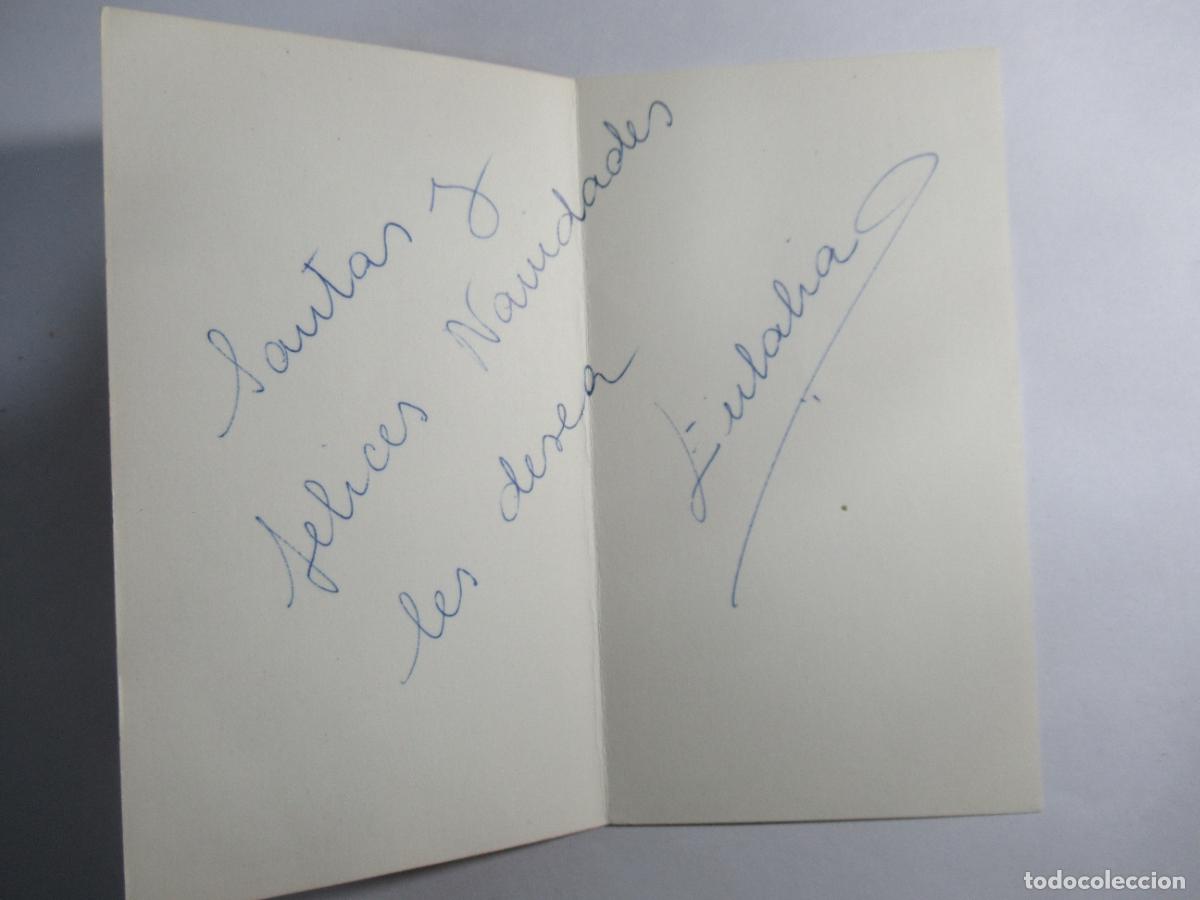 Santas y
felices Navidades
les desea
Eulalia
todocoleccion